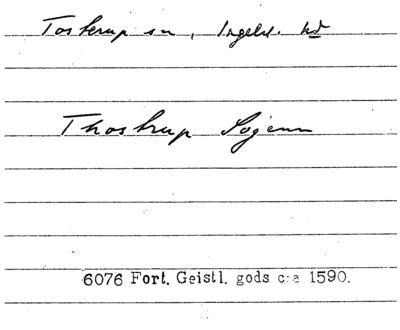 Tosterup sn, Ingelst. hd
Thostrup Sogenn
6076 Fort. Geistl. gods c:a 1590.